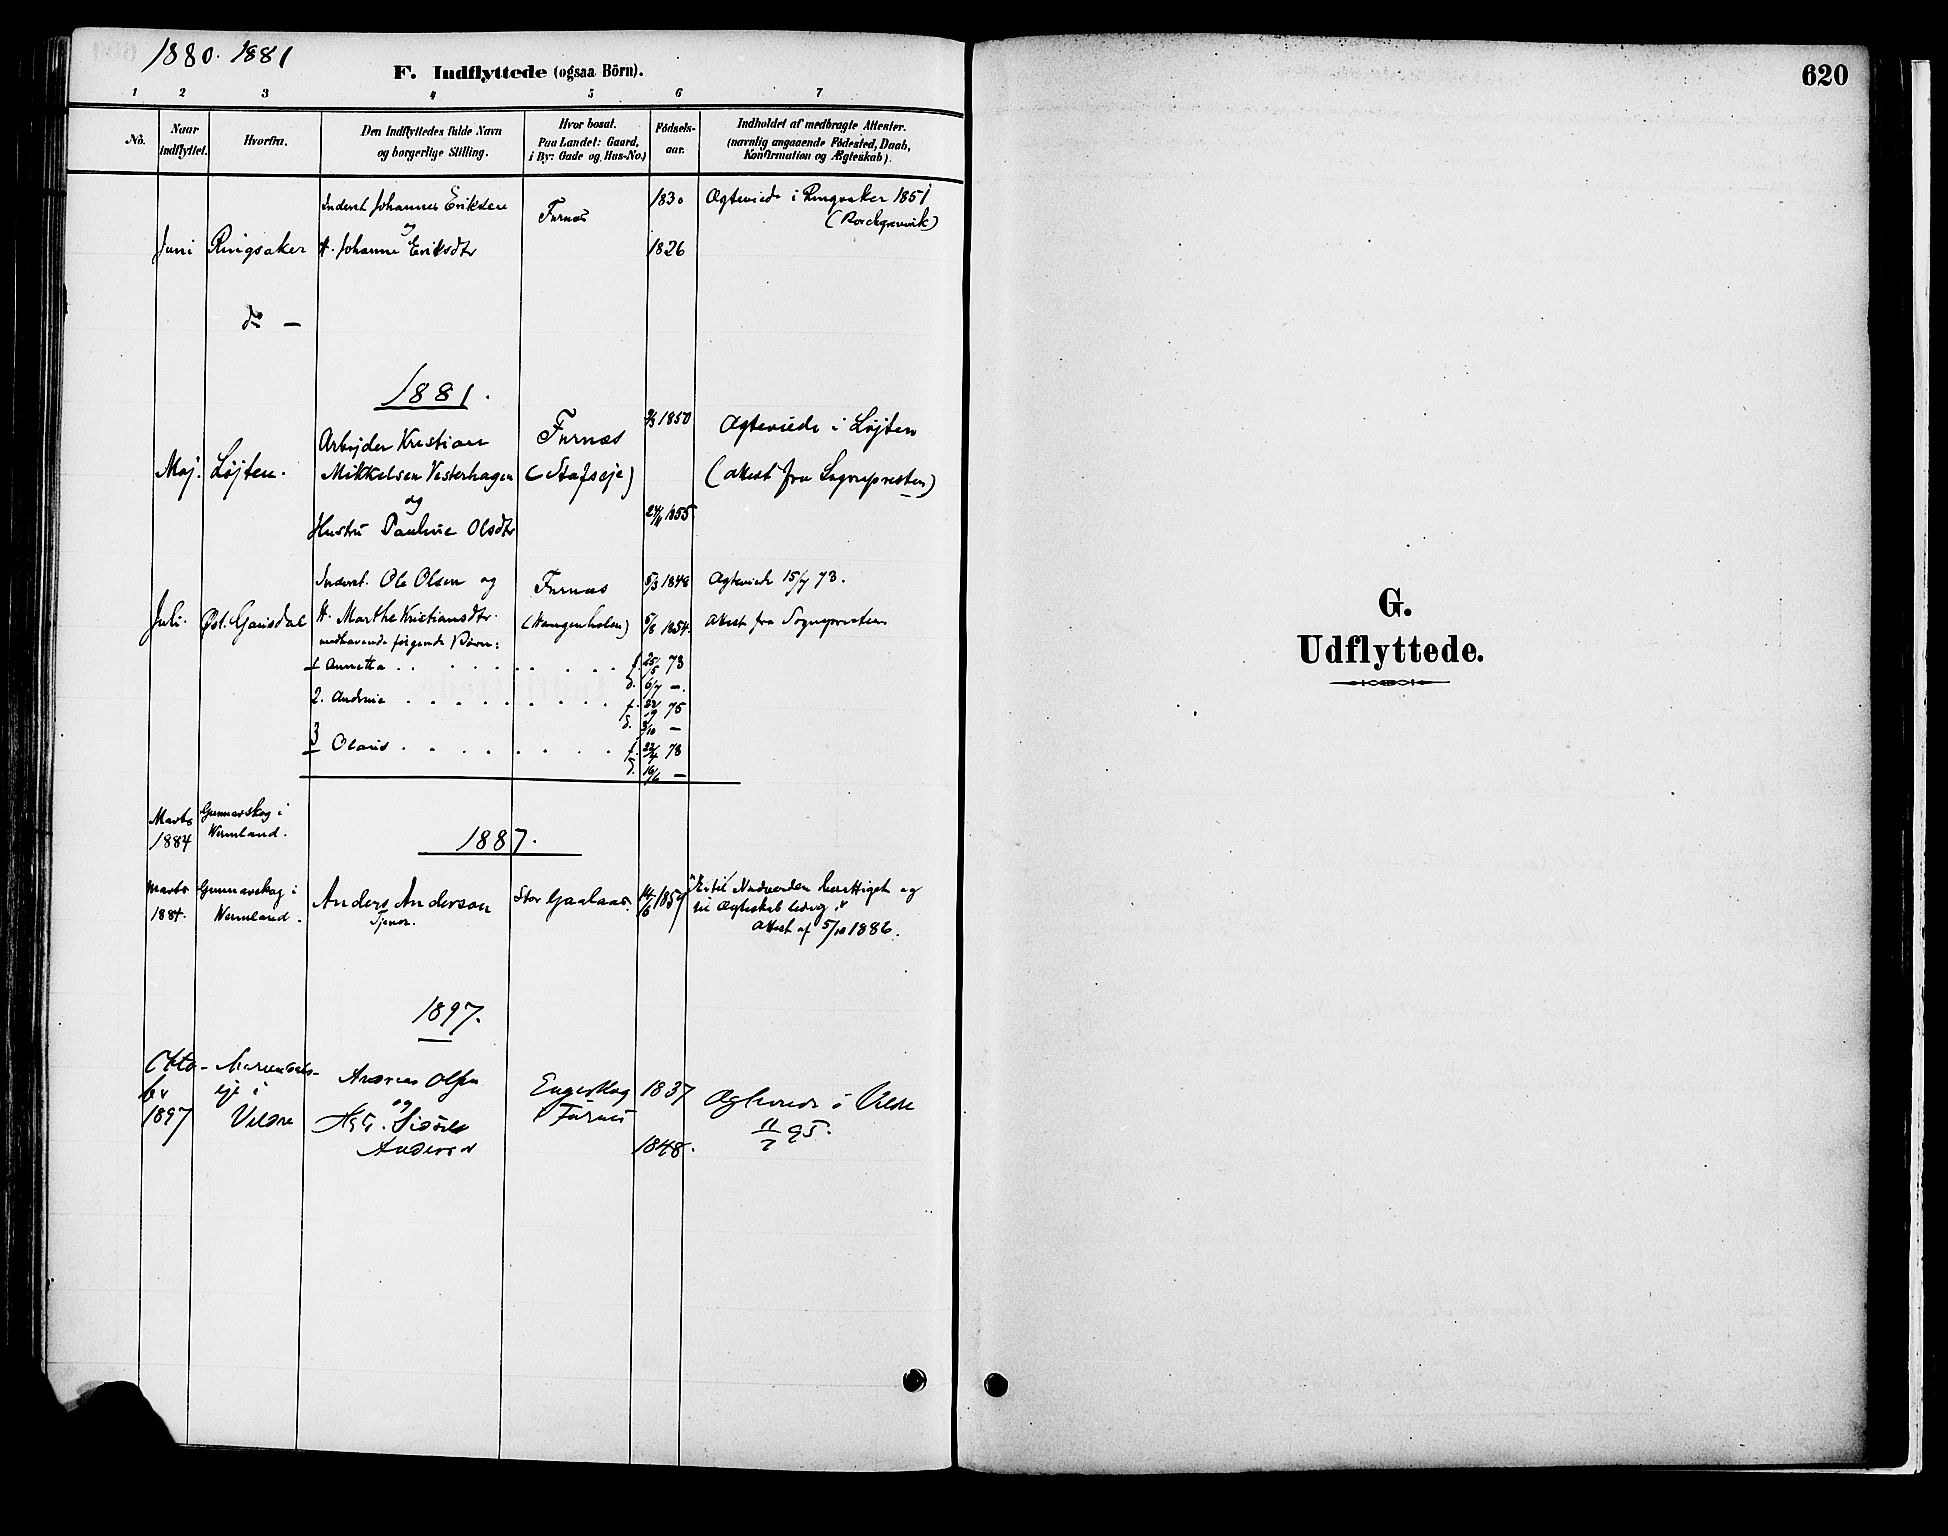 1880. 1881
F. Indflyttede (ogsaa Börn).
1 2 3 4 5 6 7
No.
Naar
indflyttet.
Hvorfra.
Den Indflyttedes fulde Navn
og borgerlige Stilling.
Hvor bosat.
Paa Landet: Gaard,
i By: Gade og Hus-No.)
Födsels-
aar.
Indholdet af medbragte Attester.
(navnlig angaaende Födested, Daab,
Konfirmation og Ægteskab).
Inderst Johannes Eriksen
og
H. Johanne Eriksdtr
Juni
Ringsaker
Furnæs
1830
1826
Ægteviede i Ringsaker 1851
do —
1881.
Maj.
Løjten.
Arbejder Kristian
Mikkelsen Vesterhagen
og
Hustru Pauline Olsdtr
Furnæs
(Stafseje)
1850
24/11 1855
Ægteviede i Løjten
(Attest fra Sognepresten)
Juli.
Øst. Gausdal
Inderst. Ole Olsen og
H. Marthe Kristiansdtr.
medhavende følgende Børn:
1 Annetta
2. Andrine
3 Olaus
Furnæs
5/3 1848
5/8 1854.
f. 25/5 73
d. 6/7 —.
f. 22/9 75
d. 3/10 —
f. 22/4 78
d. 16/6 —
Ægteviede 15/7 73.
Attest fra Sognepresten
Marts
1884
Gunnarskog i
Wermland.
1887.
Marts
1884.
Gunnarskog i
Wermland.
Anders Anderson
Tjener.
Stor Gaalaas.
14/6 1859
til Nadverden berettiget og
til Ægteskab ledig
Attest af 5/10 1886.
1897.
Okto-
ber
1897
eje i
Veldre
Andreas Olsen
og
Anders
Engerskog
i Furnes
1837
1848.
Ægteviede i Veldre
11/7 95.
620
G.
Udflyttede.